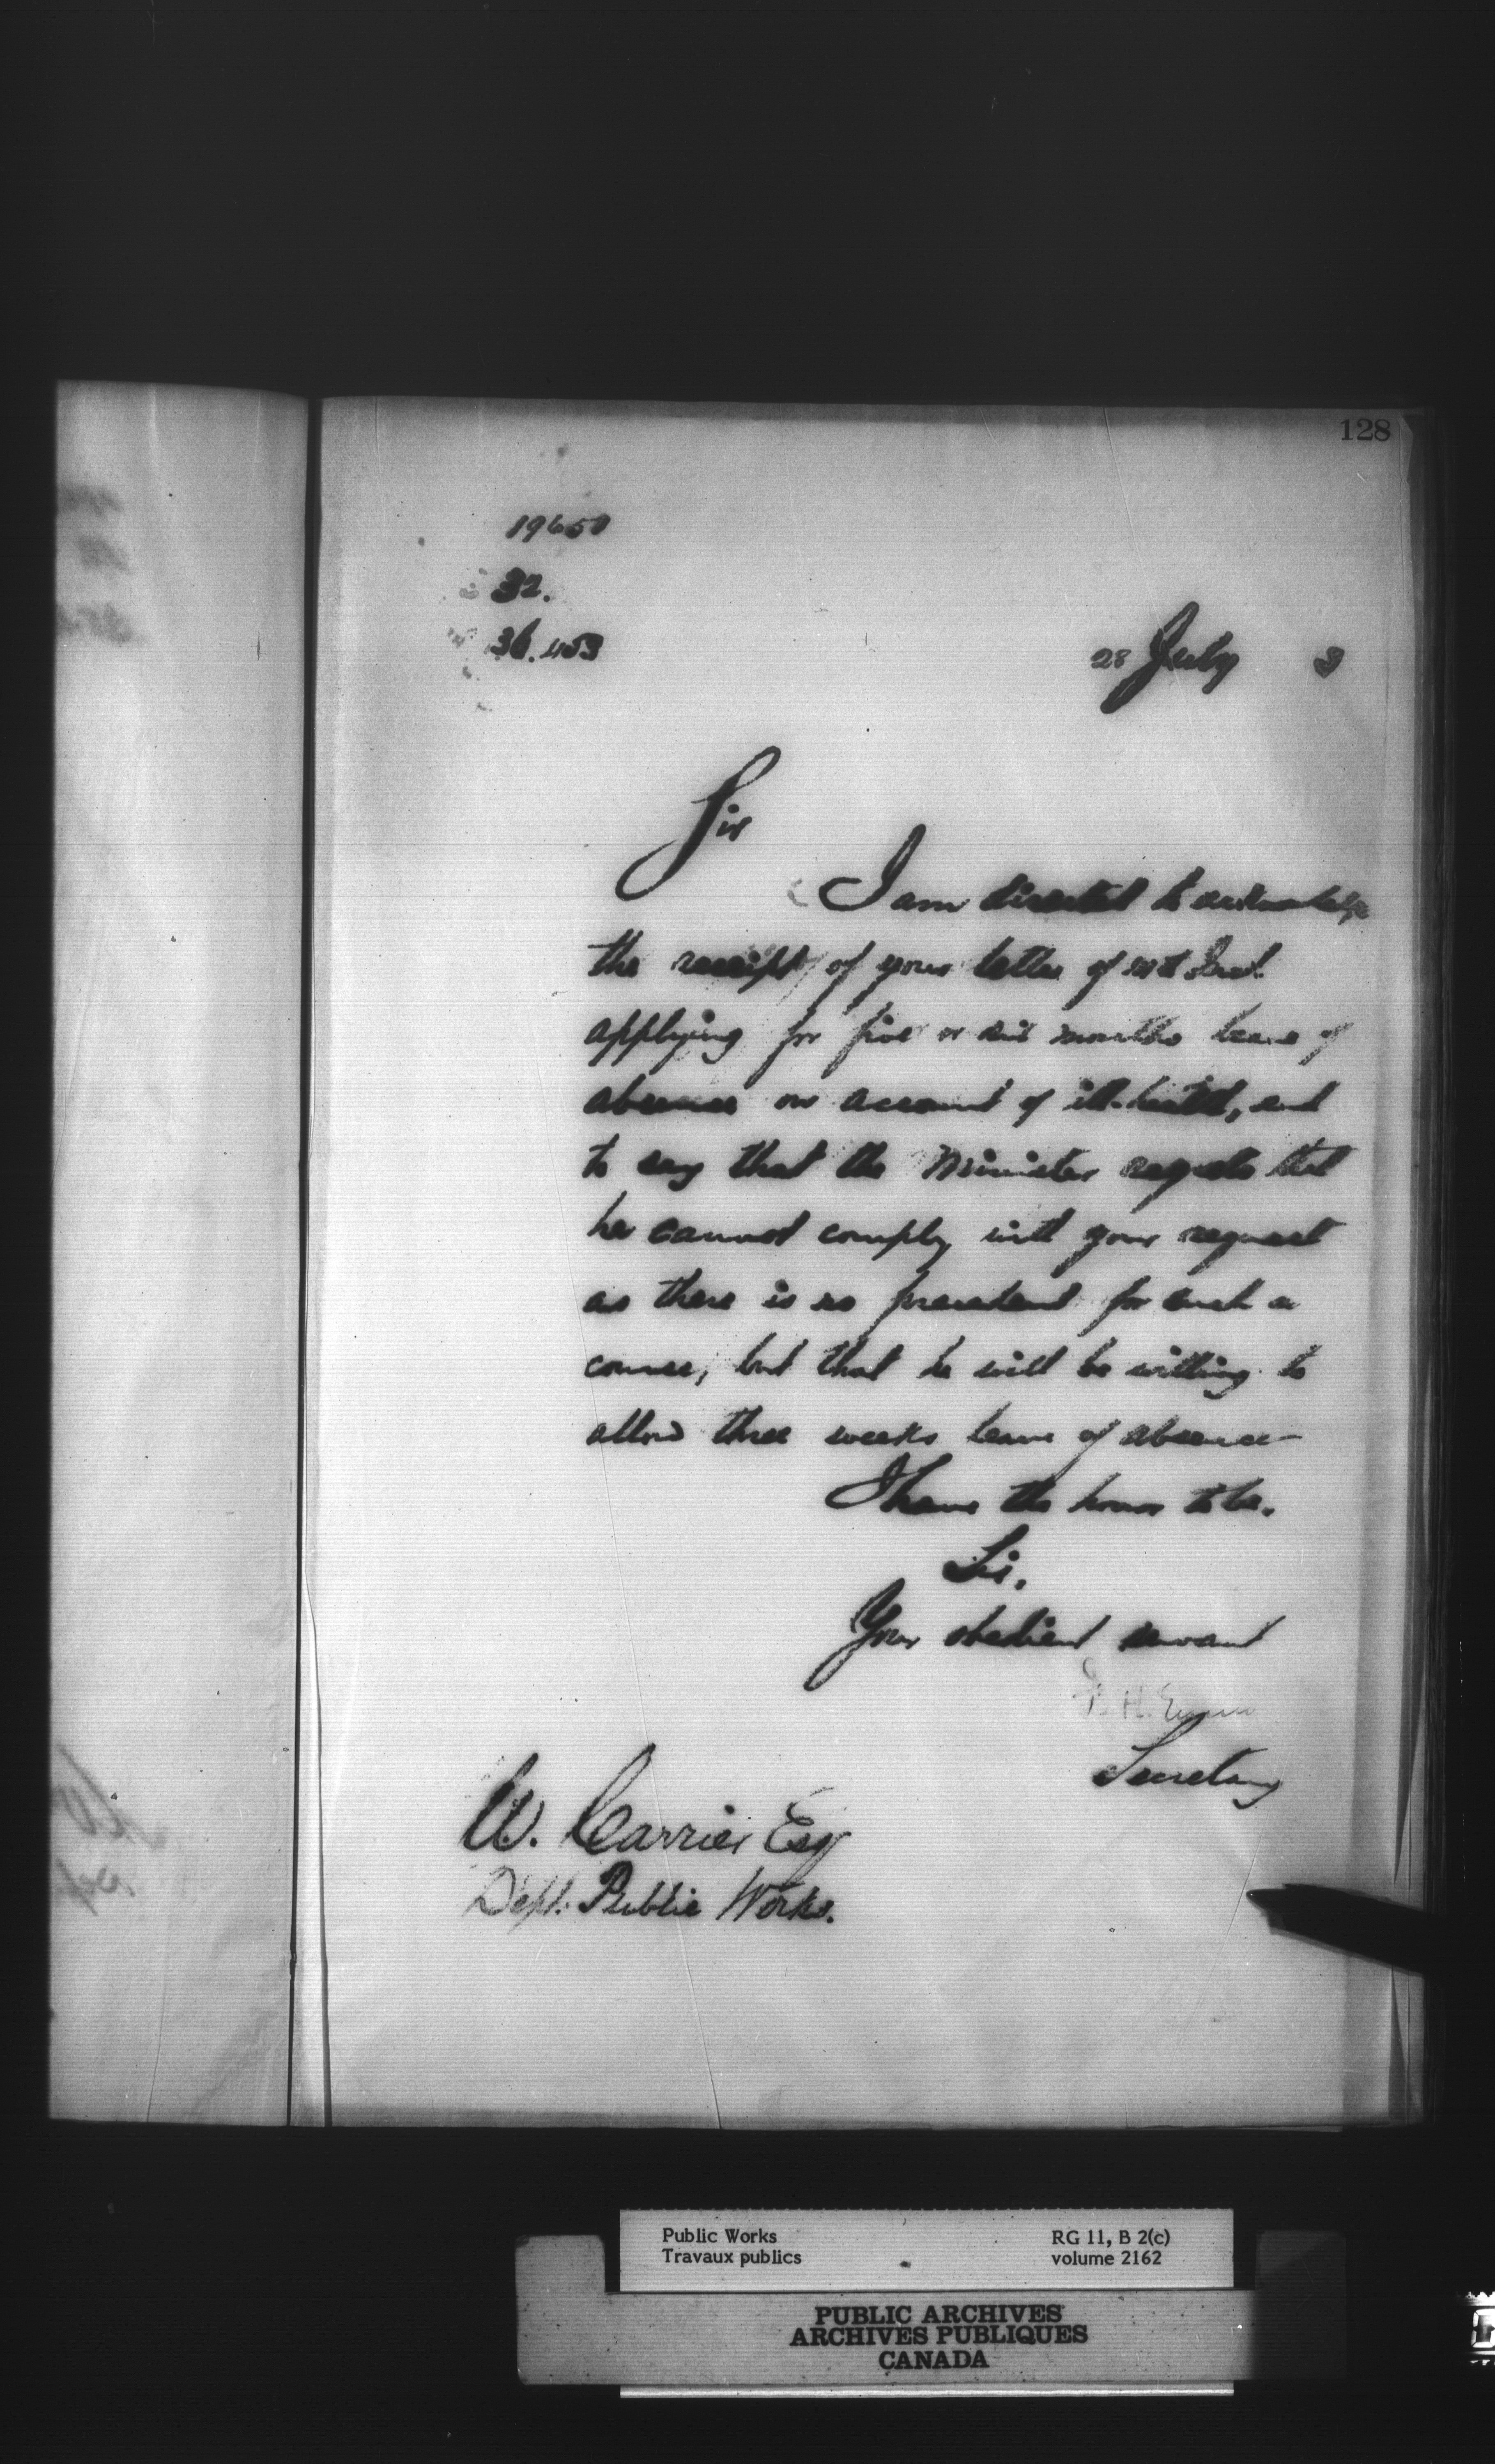 128
19650
32.
36.453
28 July 3
Sir
I am directed to acknowledge
the receipt of your letter of Inst.
applying for five or six months leave of
absence on account of ill-health, and
to say that the Minister regrets that
he cannot comply with your request
as there is no precedent for such a
course, but that he will be willing to
allow three weeks leave of absence
I have the honor to be.
Sir,
Your obedient servant
F. H. Ennis
Secretary
W. Carrier Esq
Dept. Public Works.
Public Works
Travaux publics
RG 11, B 2(c)
volume 2162
PUBLIC ARCHIVES
ARCHIVES PUBLIQUES
CANADA